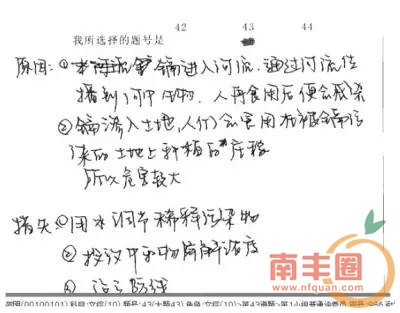 42 43 44
我所选择的题号是
原因:① 镉进入河流,通过河流传
播到河中生物,人再食用后便会感染
② 镉渗入土地,人们会食用在被镉污
染的土地上种植的庄稼
所以危害较大
措失:①用水调节稀释污染物
②投 中和 解浓度
③
南丰圈
www.nfquan.com